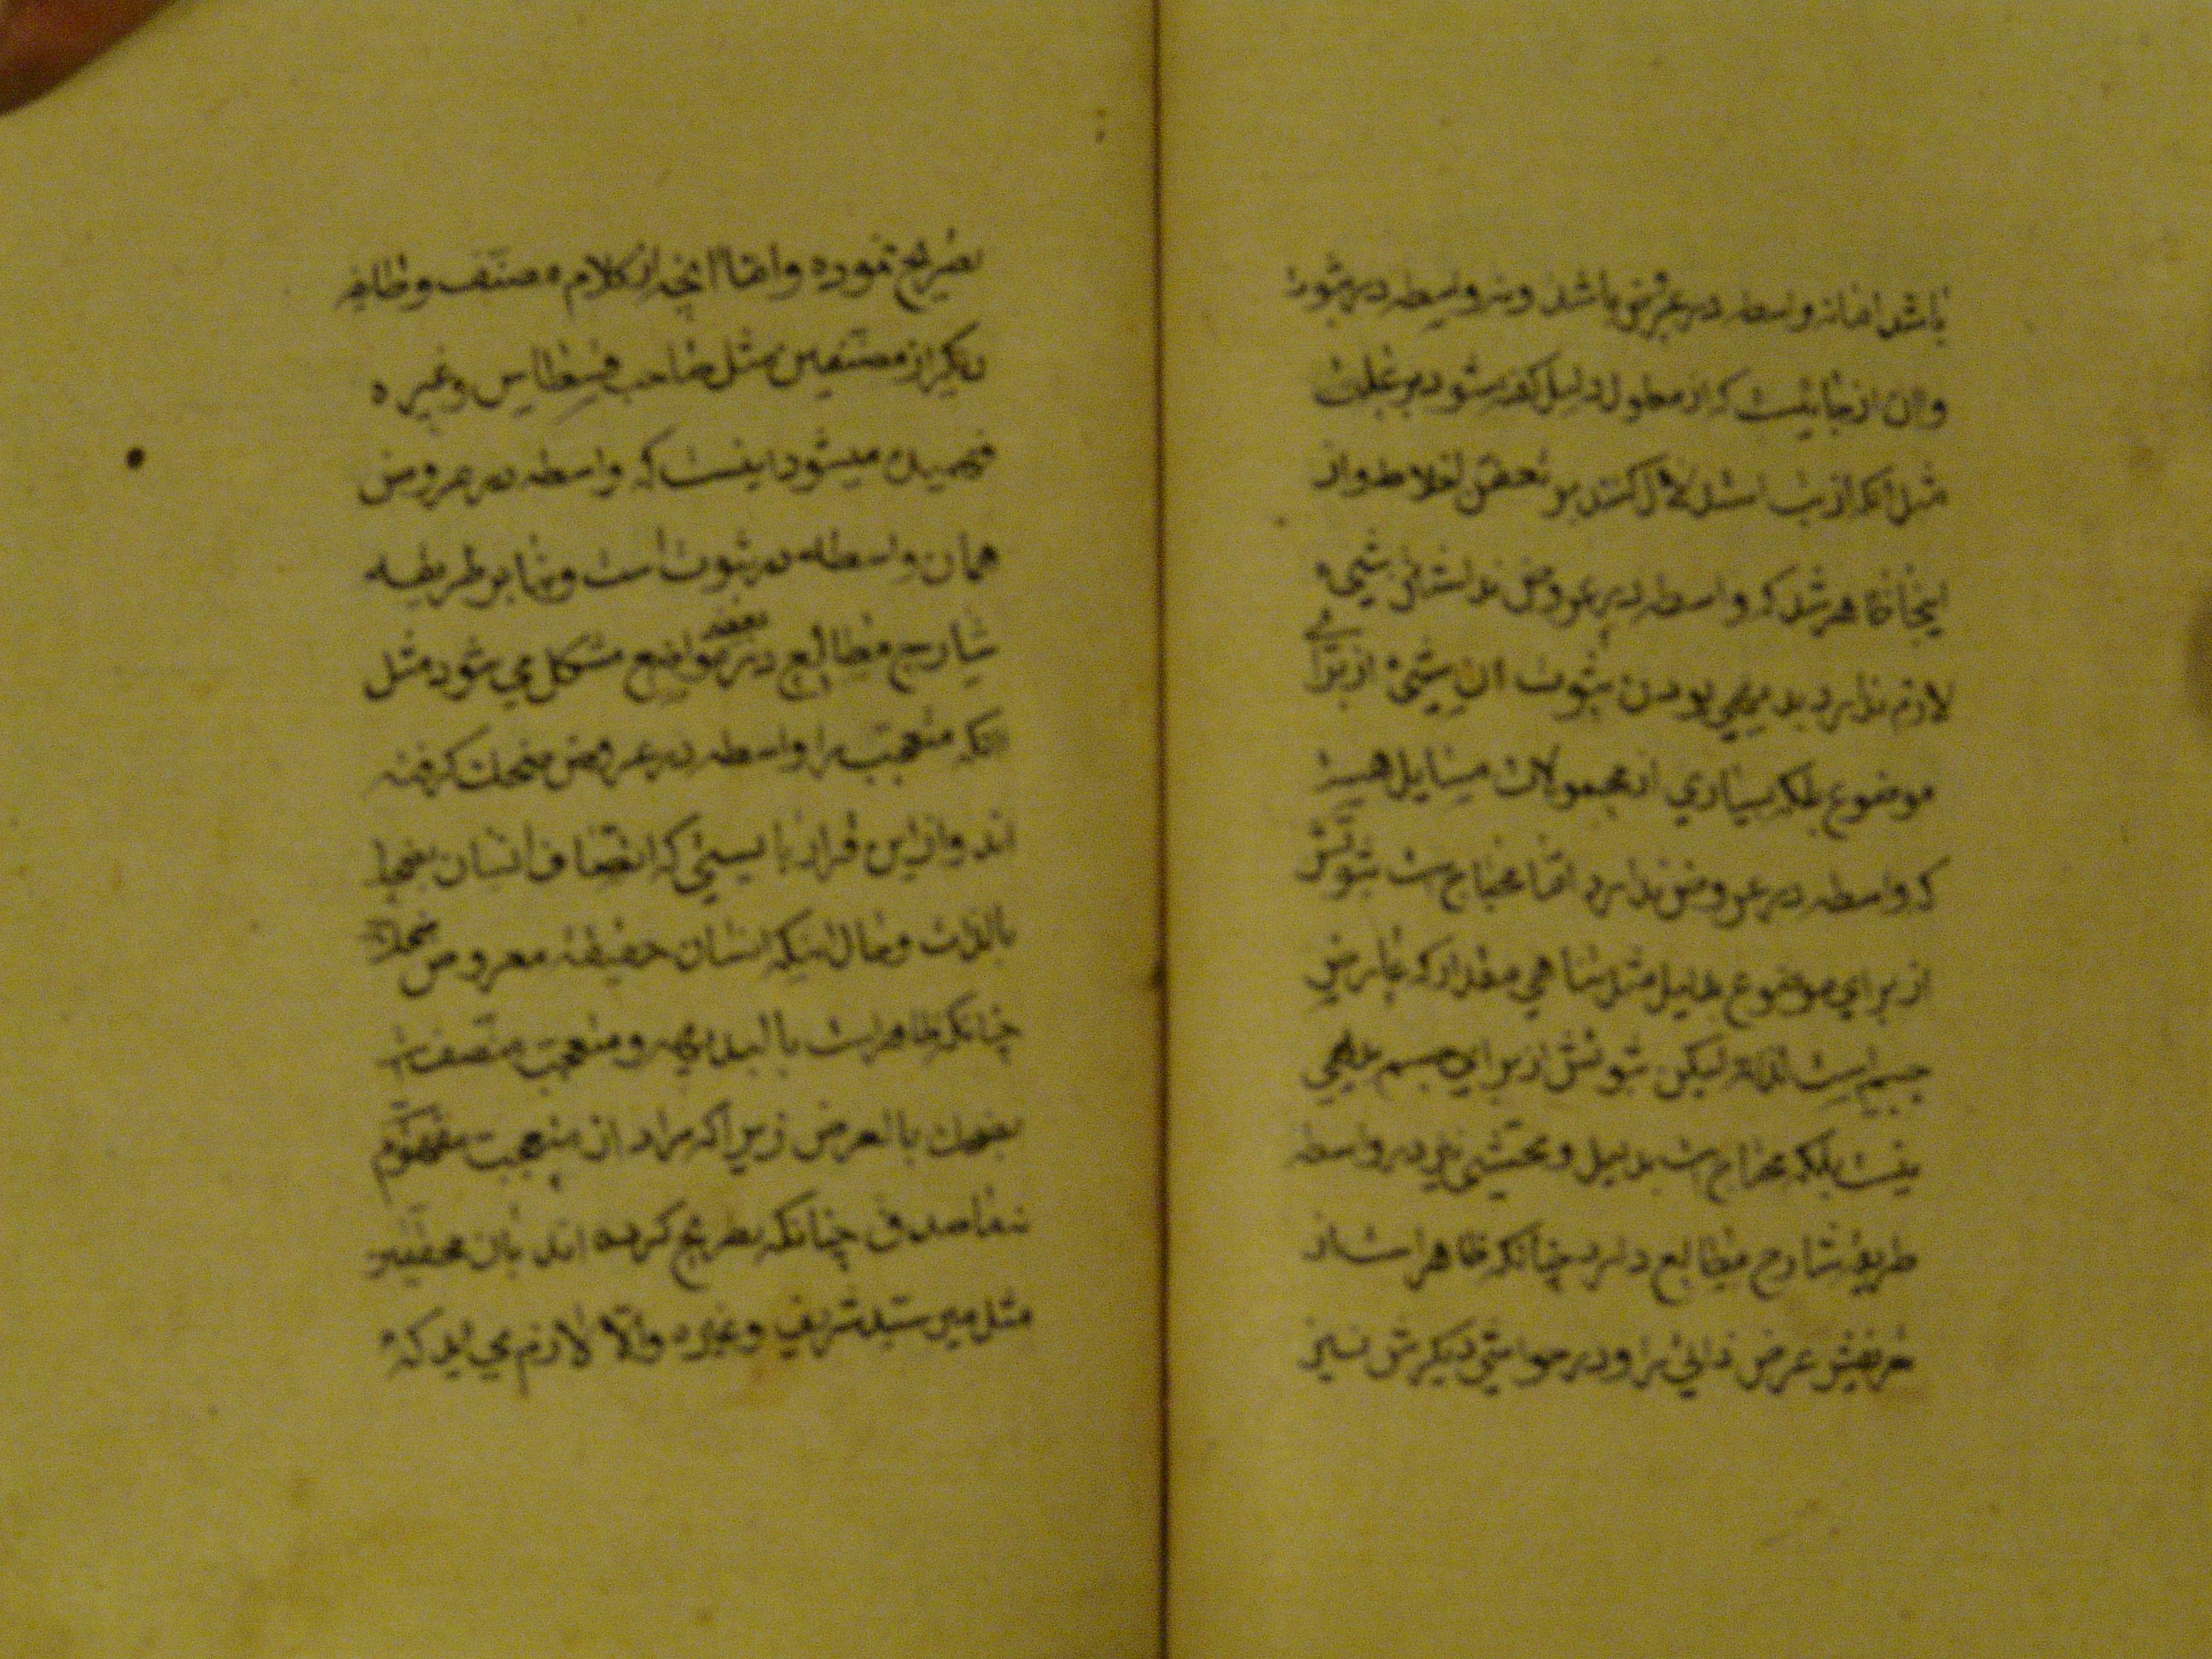 باشد اما نه واسطه در عروض باشد و نه واسطه در ثبوت
وان از جائیست که از معلول دلیل گفته شود بر علت
مثل انکه از استدلال کنند بر تحقق اخلاط و از
اینجا ظاهر شد که واسطه در عروض نداشتن شیء
لازم ندارد بدیهی بودن ثبوت ان شیء از برای
موضوع بلکه بسیاری از محمولات مسایل هست
که واسطه در عروض ندارد اما محتاج است ثبوتش
از برای موضوع بدلیل مثل تناهی مقدار که عارض
جسم است لذاته لیکن ثبوتش از برای جسم بدیهی
نیست بلکه محتاج است بدلیل و محشی در واسطه
طریقهٔ شارح مطالع دارد چنانکه ظاهر است از
تعریفش عرض ذاتی را و در حواشی دیکرش نیز
تصریح نموده و اما انچه از کلام مصنف و طایفه
دیکر از مصنفین مثل صاحب قسطاس و غیره
فهمیده میشود اینست که واسطه در عروض
همان واسطه در ثبوت است و بنا بر طریقه
شارح مطالع در بعضی مواضع مشکل می شود مثل
انکه متعجب را واسطه در عروض ضحک کرفته
اند و از این قرار بایستی که اتصاف انسان بضحک
بالذات و حال اینکه انسان حقیقة معروض ضحک
چنانکه ظاهر است بالبدیهه و متعجب متصف است
بضحک بالعرض زیرا که مراد از متعجب مفهوم
نه ماصدق چنانکه تصریح کرده اند بان محققین
مثل میر سید شریف و غیره والا لازم می اید که